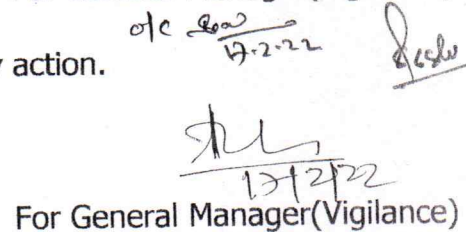 o/c
17.2.22
y action.
17/2/22
For General Manager(Vigilance)